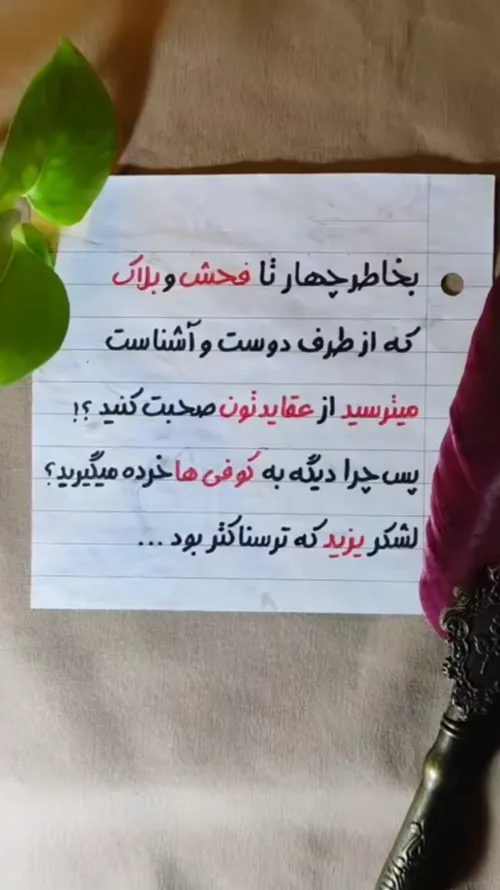 بخاطر چهار تا فحش و بلاک
که از طرف دوست و آشناست
میترسید از عقایدتون صحبت کنید ؟!
پس چرا دیگه به کوفی ها خرده میگیرید؟
لشکر یزید که ترسناکتر بود ...